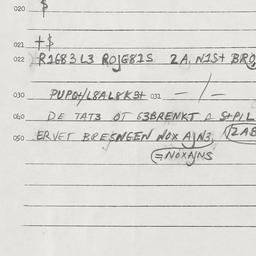 020 $
021 +$
022 R1G83L3 ROJG81S 2A. N1S+ BRO
030 PUPO+/L8AL8K9+ 031 — / —
060 DE TAT3 OT 63BRENKT A S+PIL
050 ERVET BRESNGEN NOX AJN3, (2AB
(=NOXAJNS